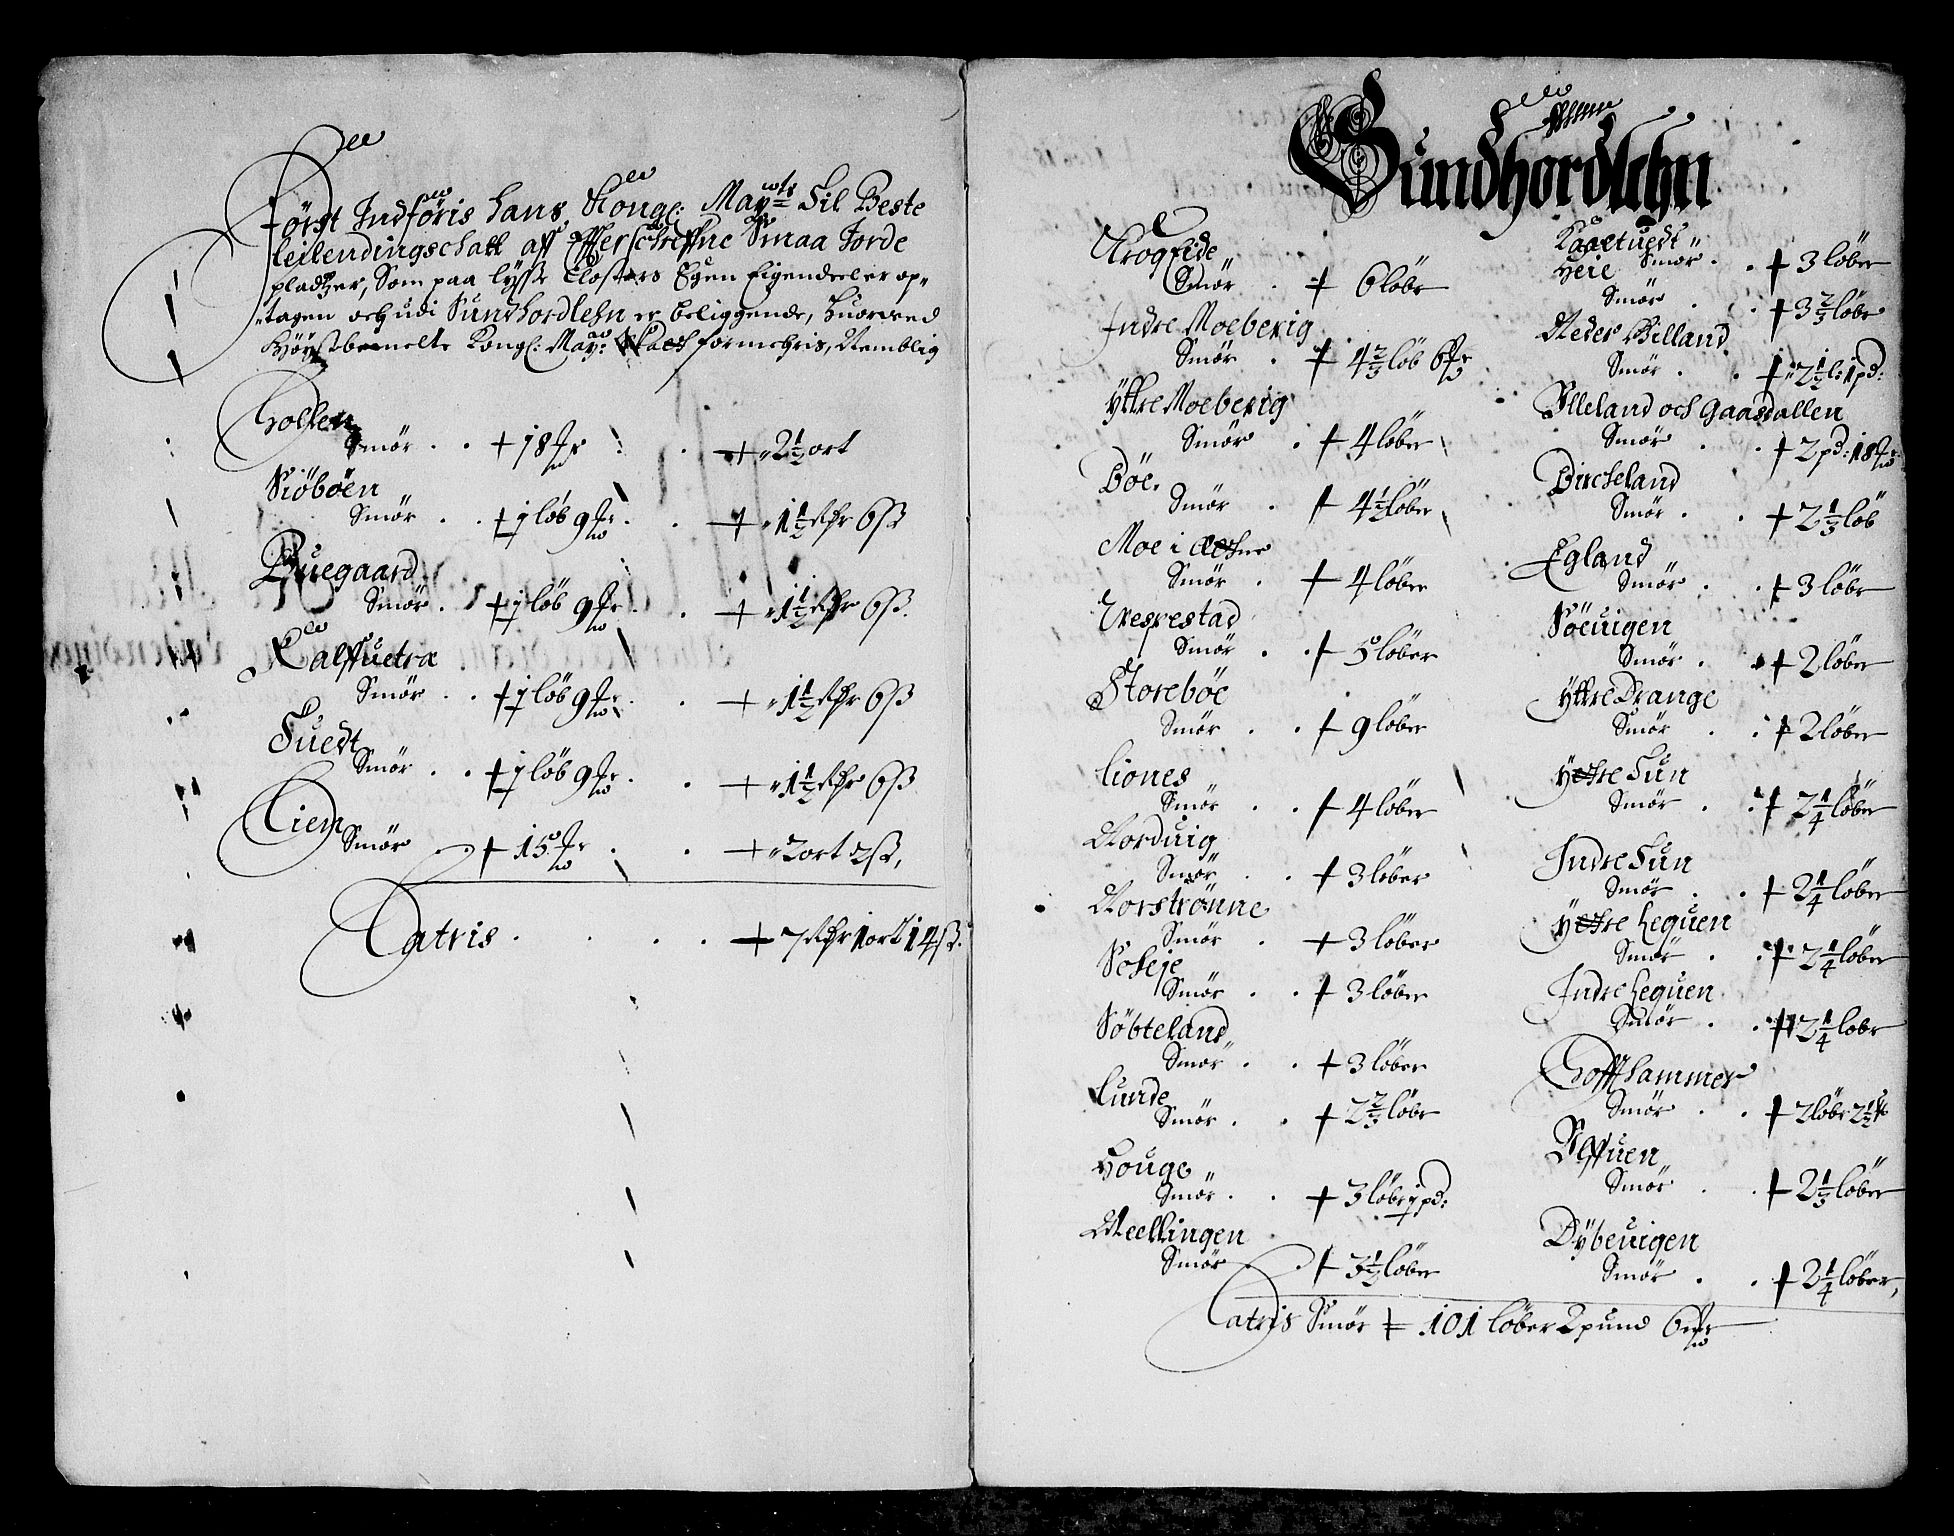 Först Indföris hans Kongl: Mayts Til Beste
leilendingschatt aff Effterschreffne Smaa Jorde
pladtzer, Som paa lysse Closters Egen Eigendeeler op-
tagen och udi Sundhordlehn er beliggende, huorved
Höystbemelte Kongl: May: formehris, Nemblig
Smör . . + 18 + 2½ ort
Siöböen
Smör . . + 1 löb 9 + 1½ Rdr 6 ß
Buegaard
Smör . . + 1 löb 9 + 1½ Rdr 6 ß
Kalffuetræ
Smör . . + 1 löb 9 + 1½ Rdr 6 ß
Tuedt
Smör . . + 1 löb 9 + 1½ Rdr 6 ß
Liem
Smör . . + 15 + 2 ort 2 ß
Latris . . . . + 7 Rdr 1 ort 14 ß
Sundhordlehn
Smör . + 6 löbr
Indre Moeberig
Smör . + 4⅔ löb 6
Yttre Moeberig
Smör . + 4 löber
Böe.
Smör . + 4½ löber
Moe i
Smör . + 4 löber
Vrerestad
Smör . . + 5 löber
Storeböe
Smör . . + 9 löber
Liones
Smör . . + 4 löber
Norduig
Smör . . + 3 löber
Norströnne
Smör . + 3 löber
Smör . . + 3 löber
Söbteland
Smör . . + 3 löber
Lunde
Smör . . + 2⅔ löbr
Houge
Smör . . + 3 löbr 1 pd:
Mellingen
Smör . + 3½ löber
Smör . . + 3 löber
Heie
Smör . . + 3⅔ löbr
Neder Billand
Smör . . + 2½ l: 1 pd:
Illeland och Gaasdallen
Smör . . + 2 pd: 18
Bircheland
Smör . . + 2⅓ löb
Egland
Smör . . + 3 löbr
Söeuigen
Smör . + 2 löber
Yttre Drange
Smör . . + 2 löber
Ytre Tun
Smör . . + 2¼ löber
Indre Tun
Smör . . + 2¼ löber
Ytre Lequen
Smör . . + 2¼ löber
Indre Lequen
Smör . . + 2¼ löbr
Hoffhammer
Smör . . + 2 löbr 2½
Smör . . + 2⅓ löber
Dybeuigen
Smör . . + 2¼ löber,
Latris Smör + 101 löber 2 pund 6